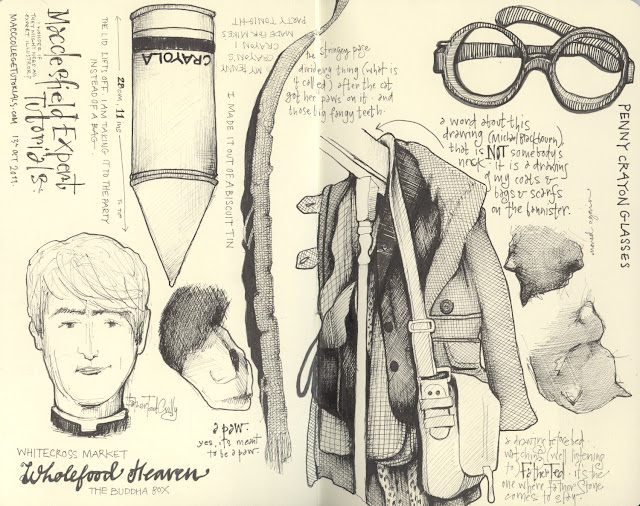 Macclesfield Expert
Tutorials.
MACCCOLLEGETUTORIALS.COM 15TH OCT 2011.
THE LID LIFTS OFF. I AM TAKING IT TO THE PARTY
INSTEAD OF A BAG.
28cm, 11 inc
TO TIP
CRAYOLA
MY PENNY
CRAYON'S
CRAYON I
MADE FOR MIKES
PARTY TONIGHT
I MADE IT OUT OF A BISCUIT TIN
the stringey page
dividery thing (what is
it called) after the cat
got her paws on it. and
those big fangy teeth.
PENNY CRAYON GLASSES
a word about this
drawing (Michael Blackbourn),
that is NOT somebody's
neck. it is a drawing
of my coats &
bags & scarfs
on the bannister.
a paw.
yes, it's meant
to be a paw.
WHITECROSS MARKET
Wholefood Heaven
THE BUDDHA BOX
a drawing before bed.
watching (well listening
to) Father ted. it's the
one where father Stone
comes to stay